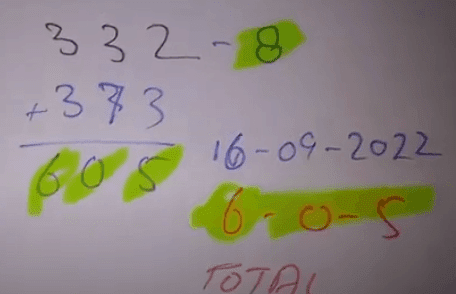 332-8
+373
605
16-09-2022
6-0-5
TOTAL